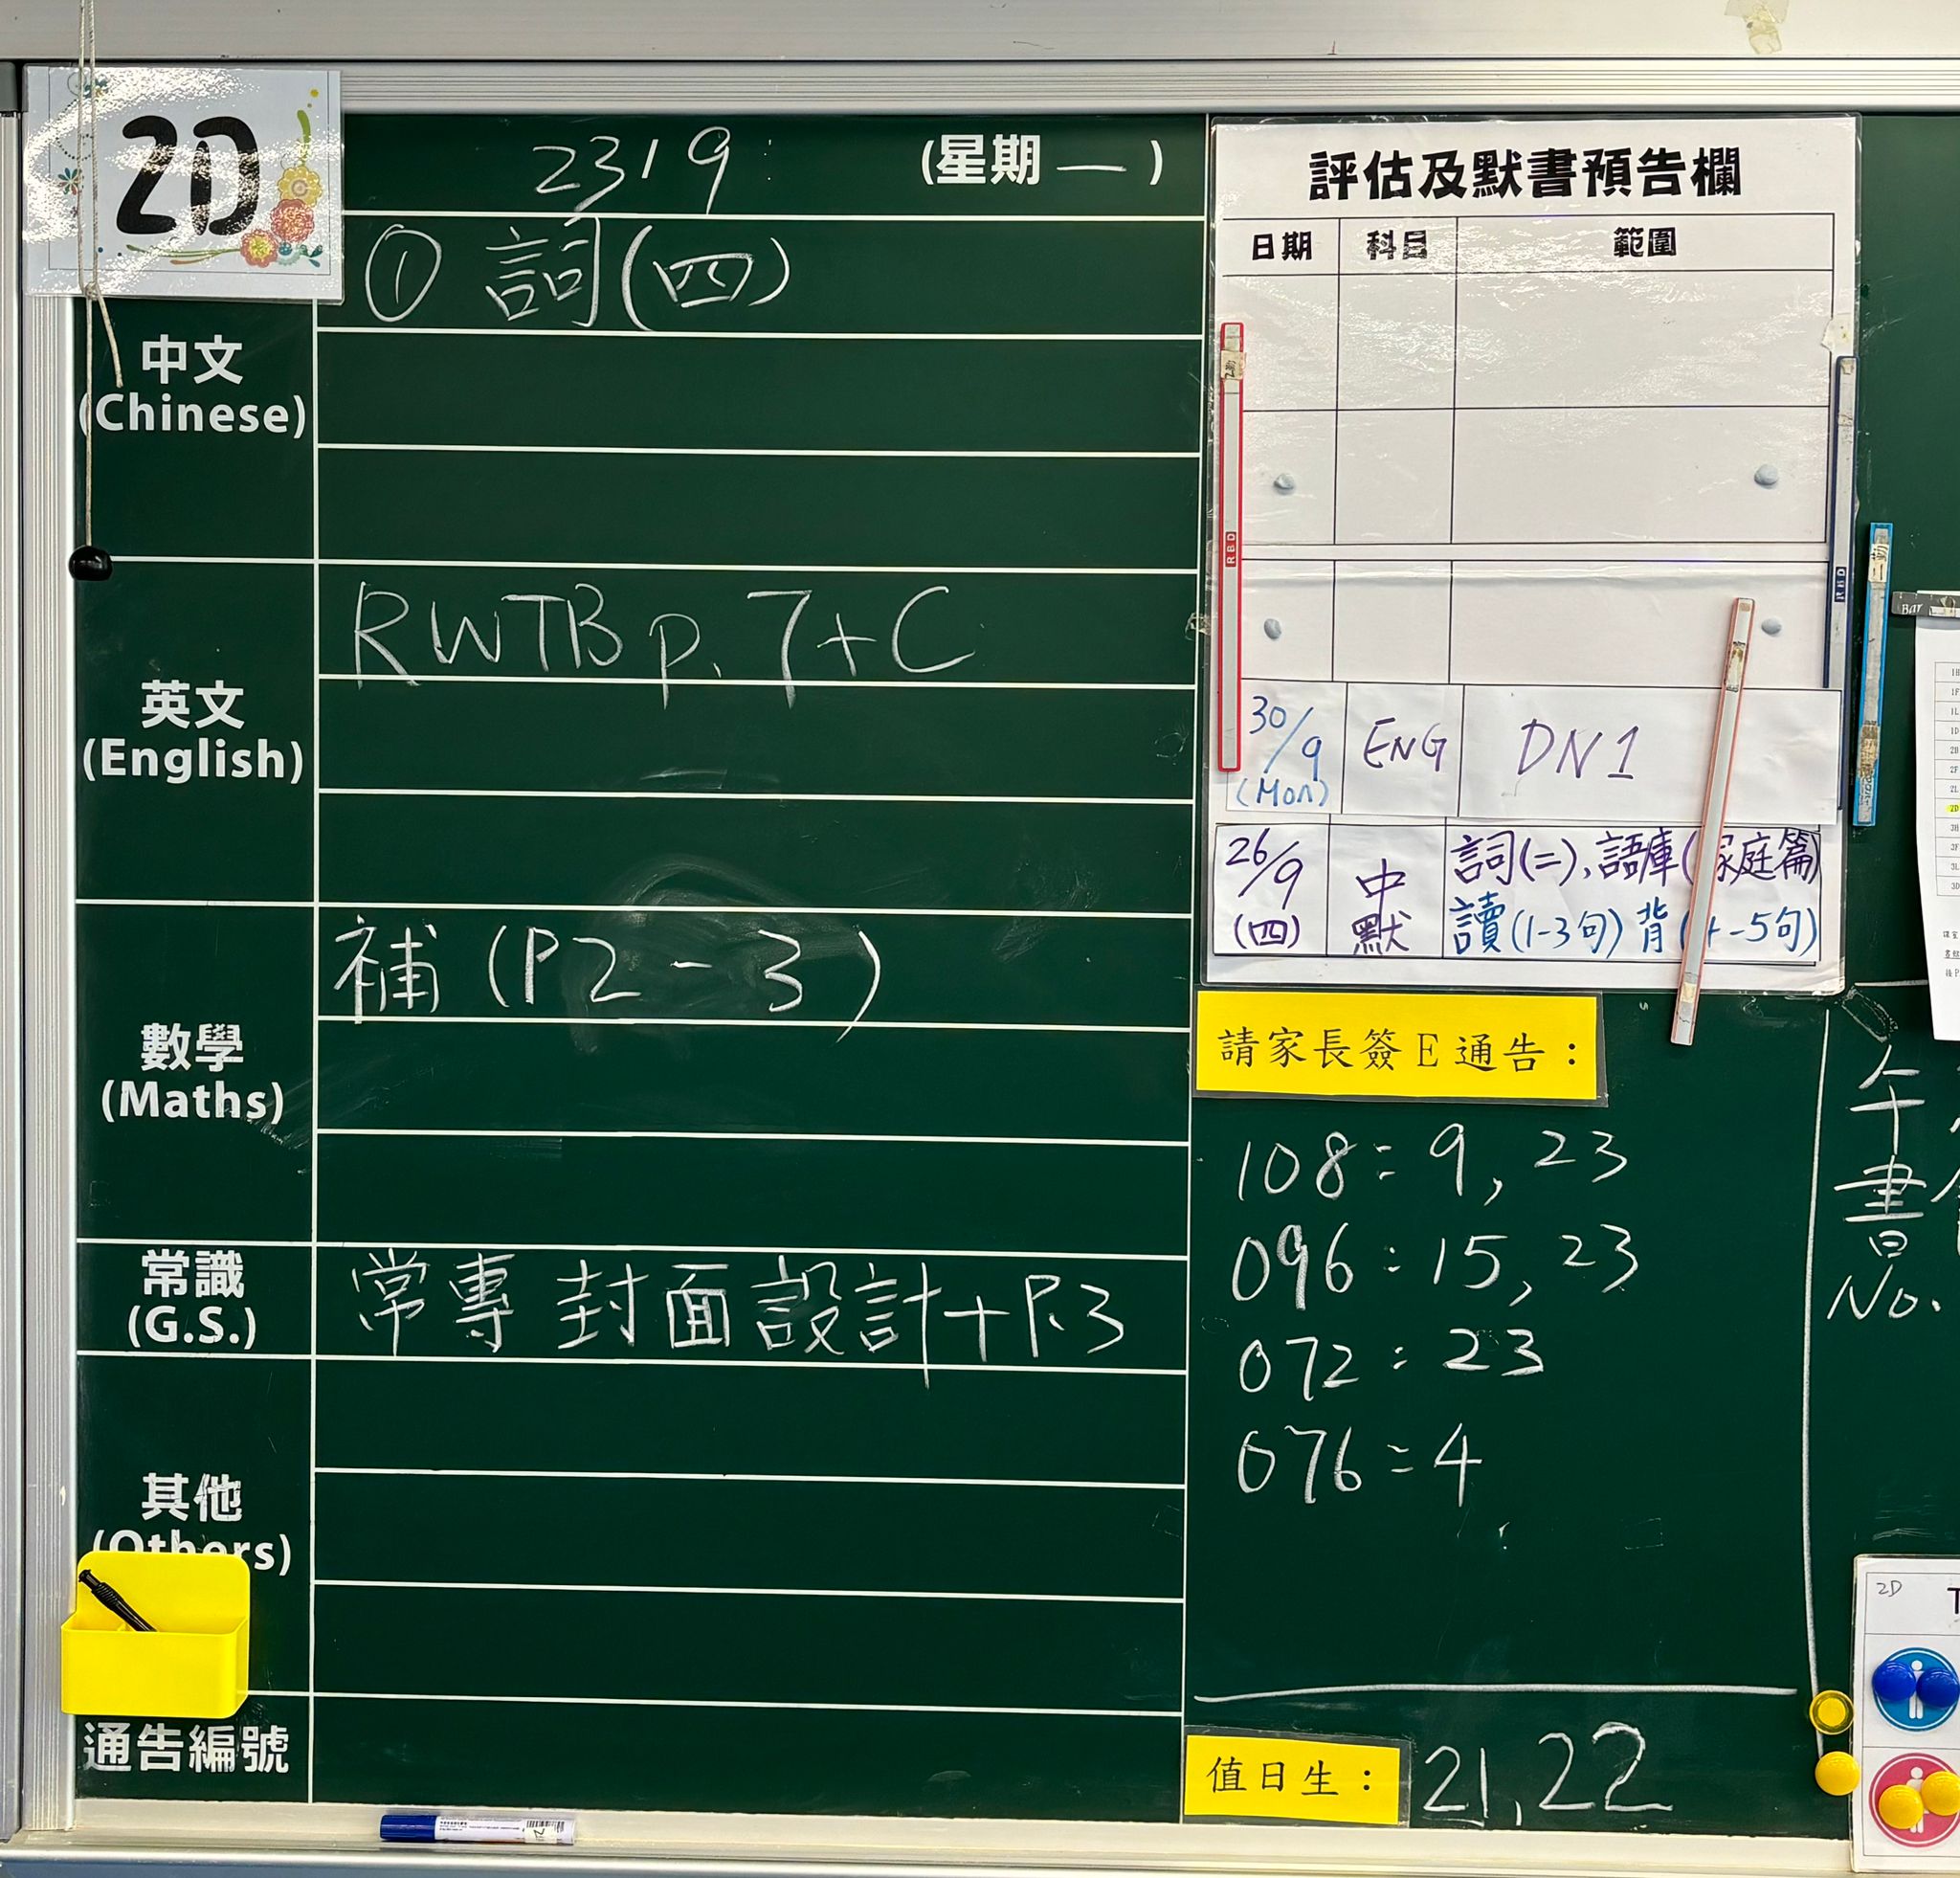 2D
23/9
(星期一)
① 詞(四)
中文
(Chinese)
RWTB p.7+C
英文
(English)
補 (P2-3)
數學
(Maths)
常識
(G.S.)
常專 封面設計+P.3
其他
(Others)
通告編號
評估及默書預告欄
日期 科目 範圍
30/9 (Mon) ENG DN1
26/9 (四) 中默 詞(二)、語庫(家庭篇)
讀(1-3句) 背(4-5句)
RBD
RBD
請家長簽E通告：
108: 9, 23
096: 15, 23
072: 23
076: 4
值日生： 21, 22
午
書
No.
2D